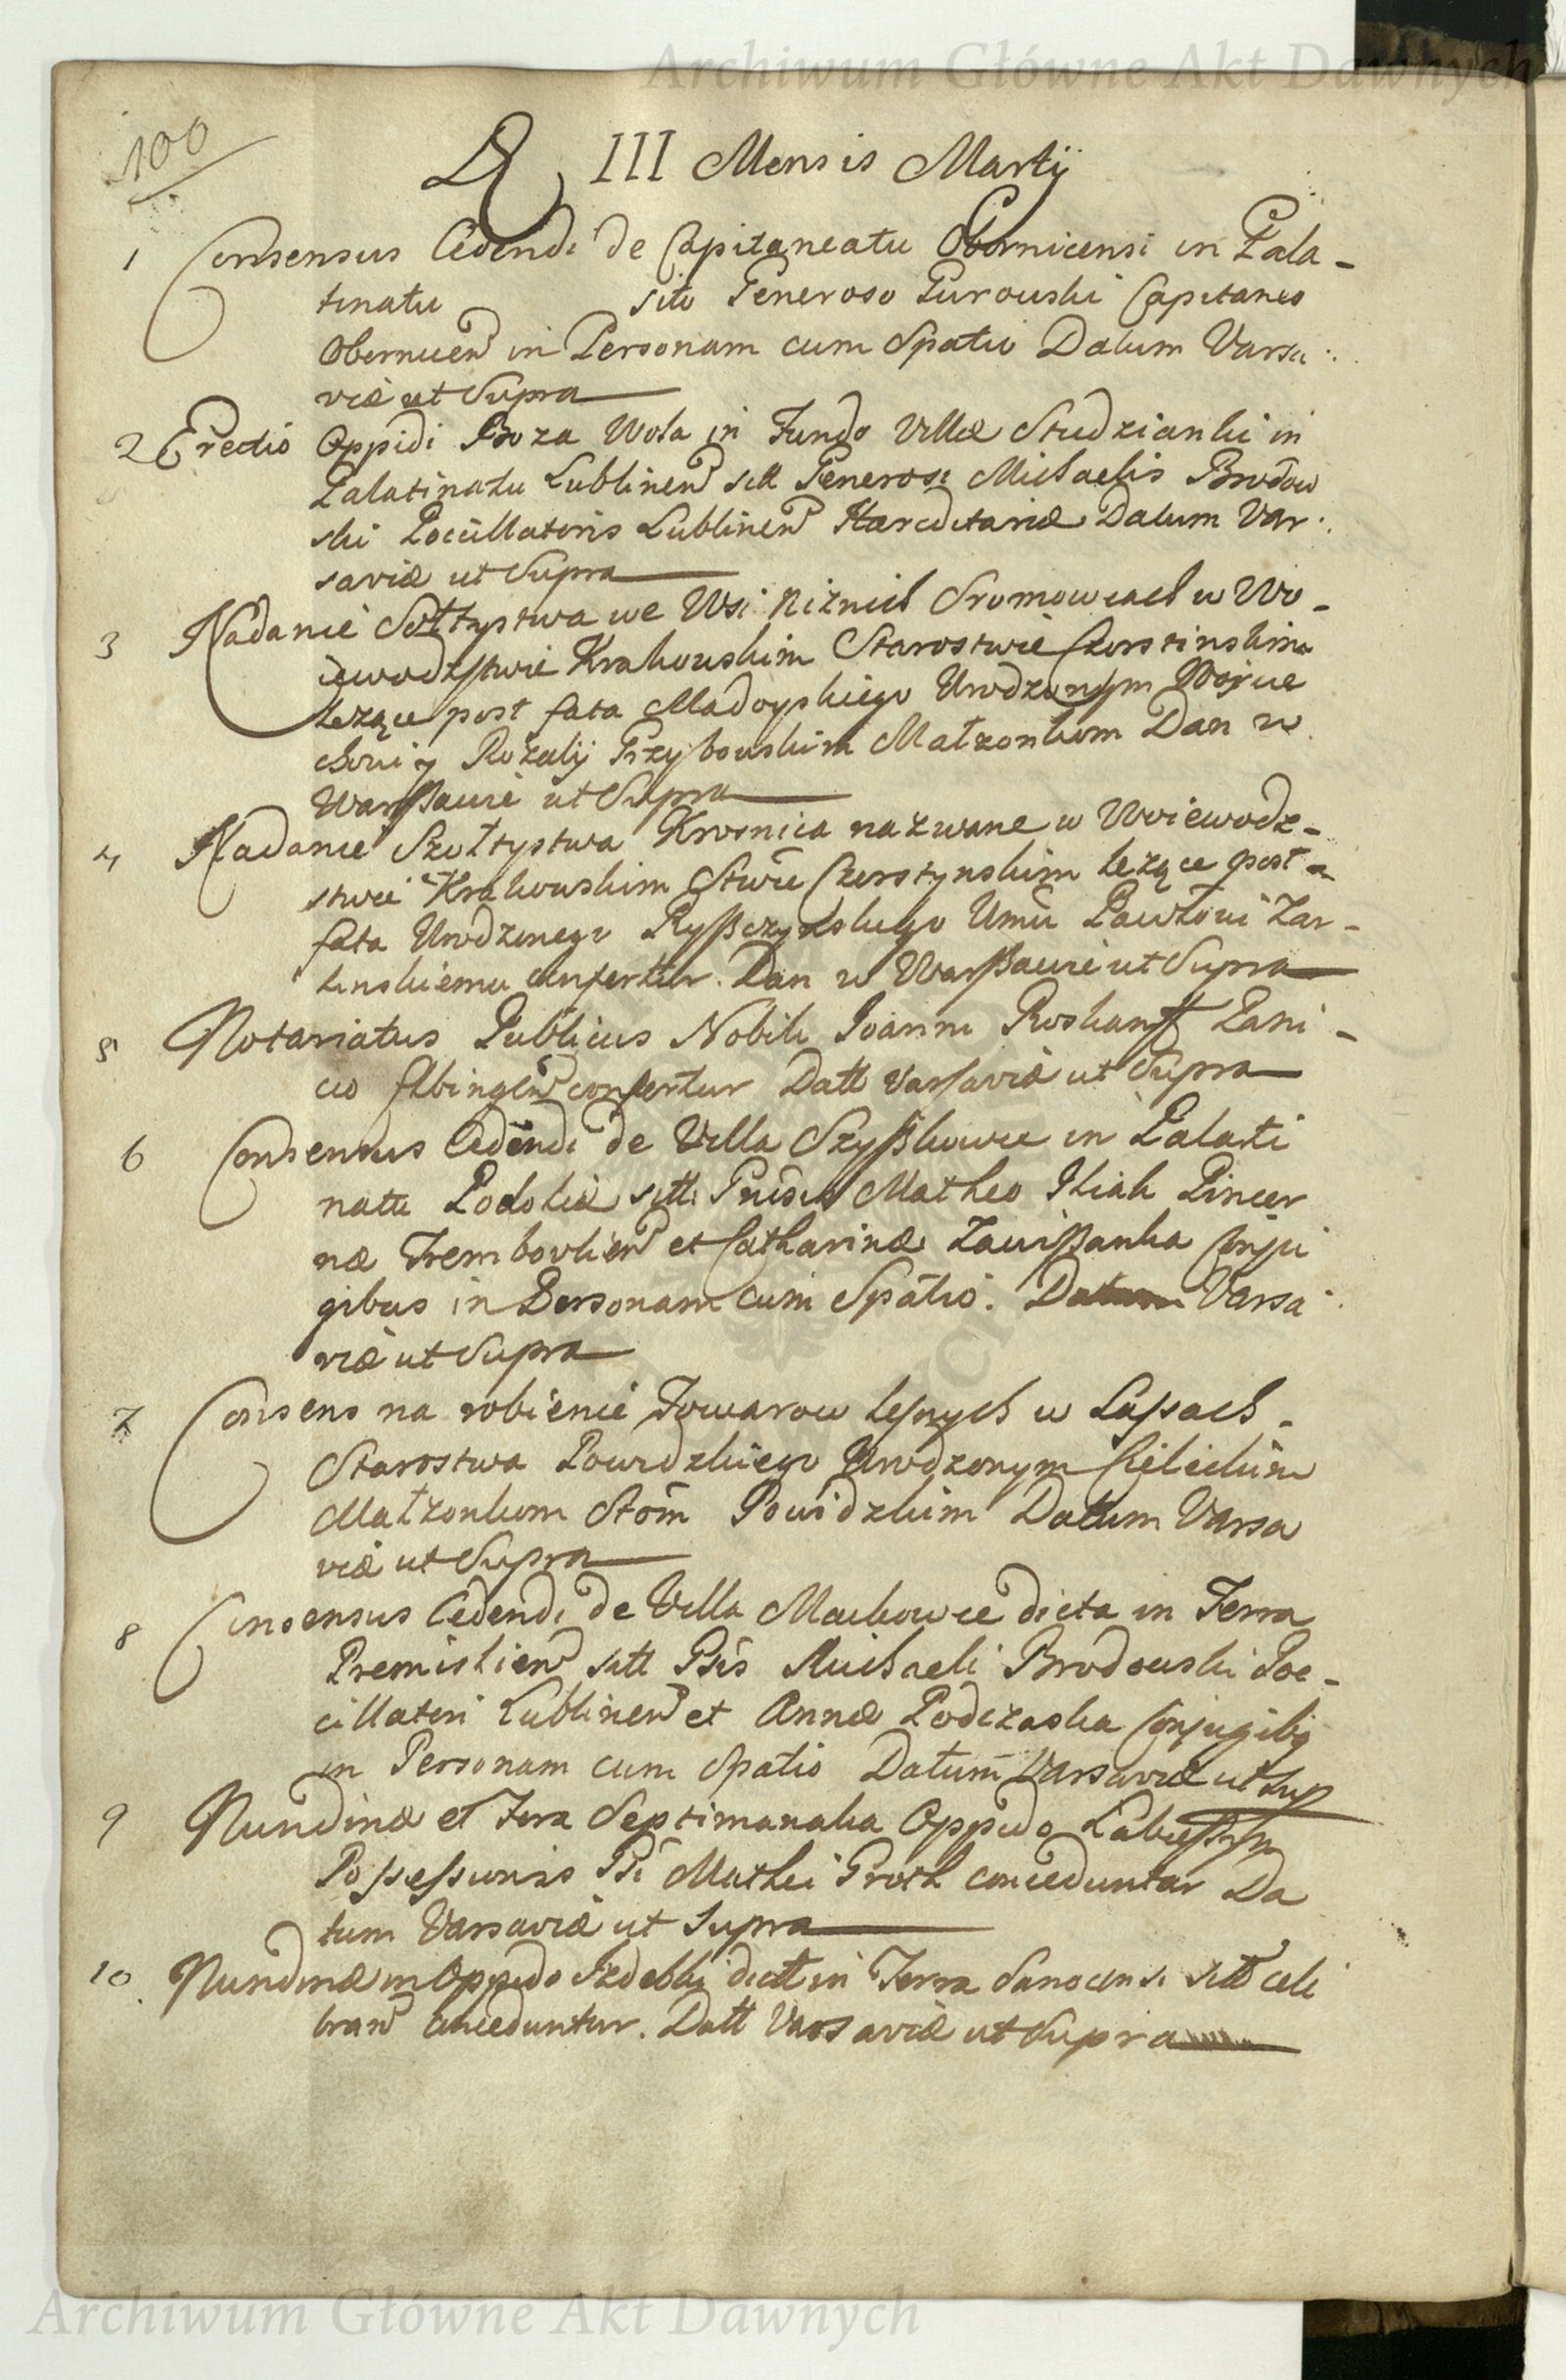 Archiwum Główne Akt Dawnych
100
D III Mensis Martij
1 Consensus Cedendi de Capitaneatu Obornicensi in Pala-
tinatu sito Generoso Gurouski Capitaneo
Obornicen in Personam cum Spatio Datum Varsa:
viæ ut Supra
2 Erectio Oppidi Boza Wola in Fundo Villæ Studzianki in
Palatinatu Lublinen sitt Generosi Michaelis Brodow
ski Pocillatoris Lublinen Hæreditariæ Datum Var:
saviæ ut Supra
3 Nadanie Sołtystwa we Wsi Niżnich Sromowcach w Wo-
iewodztwie Krakouskim Starostwie Czorstinskim
leżące post fata Madoyskiego Urodzonym Woyce
chowi y Rozalij Przybouskim Małżonkom Dan w
Warszawie ut Supra
4 Nadanie Szołtystwa Krosnica nazwane w Woiewodz-
stwie Krakouskim Stwie Czorstynskim leżące post
fata Urodzonego Ryszczynskiego Umu Pawłowi Zar-
linskiemu confertur. Dan w Warszawie ut Supra
5 Notariatus Publicus Nobili Joanni Roskampff Lani-
cio Elbingen confertur Datt Varsaviæ ut Supra
6 Consensus Cedendi de Villa Szyszkowce in Palati
natu Podoliæ sitt. Gnisis Matheo Iliak Pincer
næ Trembovlien et Catharinæ Zawiszanka Conju
gibus in Personam cum Spatio. Datum Varsa
viæ ut Supra
7 Consens na robienie Towarow leśnych w Lasach
Starostwa Powidzkiego Urodzonym Cieleckim
Małżonkom Stom Powidzkim Datum Varsa
viæ ut Supra
8 Consensus Cedendi de Villa Mackowce dicta in Terra
Premislien sitt Gsis Michaeli Brodouski Poc-
cillatori Lublinen et Annæ Podczaska Conjugibus
in Personam cum Spatio Datum Varsaviæ ut Sup
9 Nundinæ et Fora Septimanalia Oppido Labiszyn
Possessionis Gsi Mathei Groth conceduntur Da
tum Varsaviæ ut Supra
10 Nundinæ in Oppido Izdebki dictt in Terra Sanocensi sitt cele
bran conceduntur. Datt Varsaviæ ut Supra
Archiwum Główne Akt Dawnych